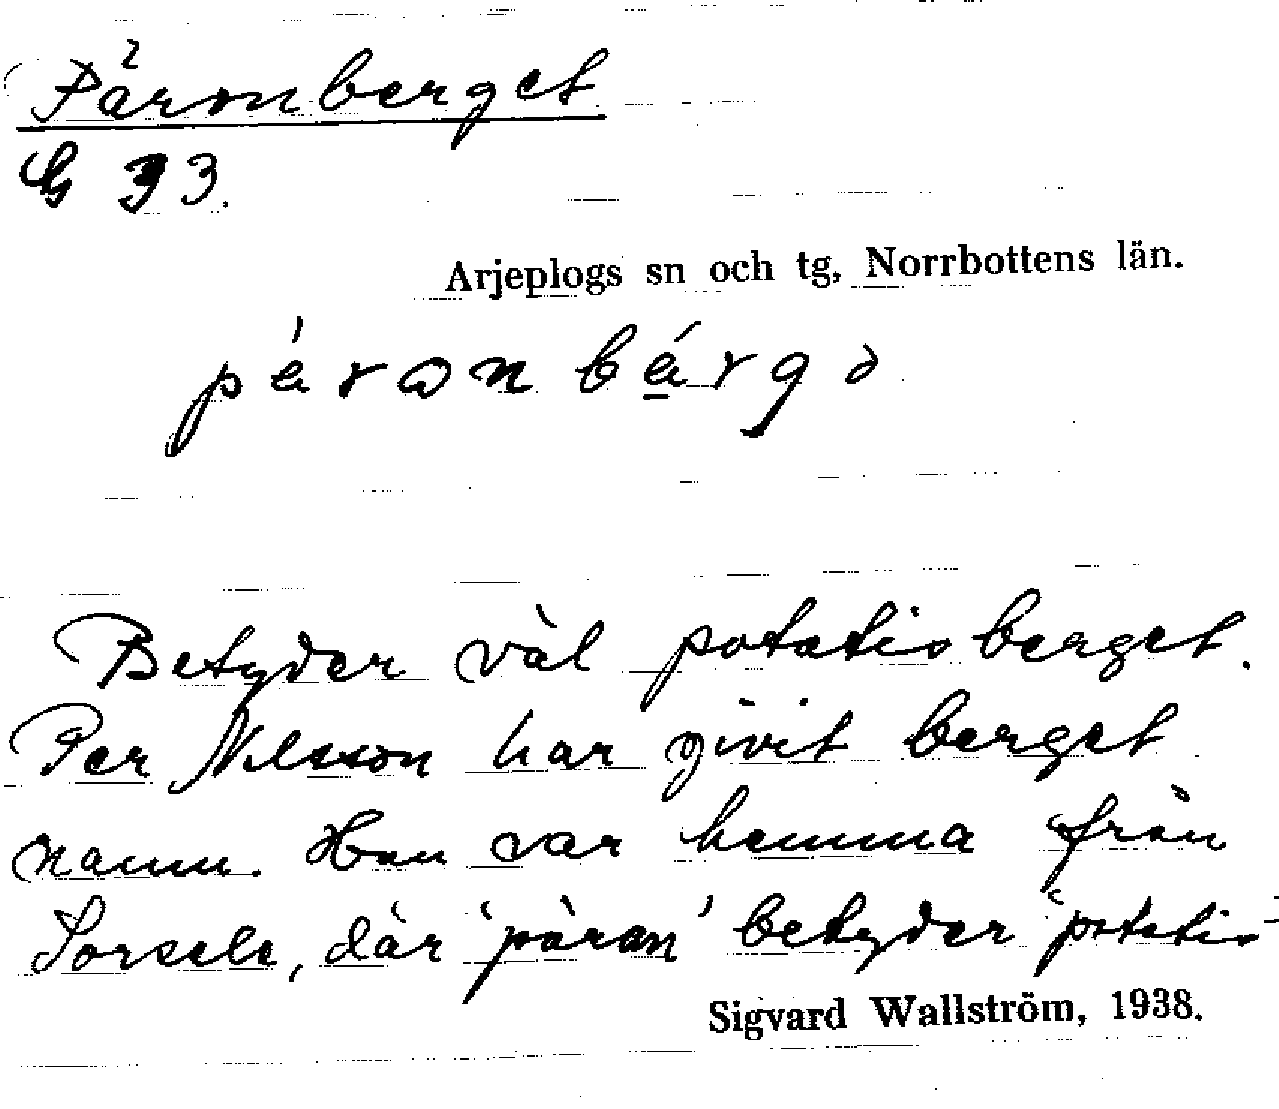 Päronberget
G 33.
Arjeplogs sn och tg, Norrbottens län.
pä́ron bä́rgə
Betyder väl potatisberget.
Per Nilsson har givit berget
namn. Han var hemma från
Sorsele, där 'päron' betyder 'potatis'
Sigvard Wallström, 1938.